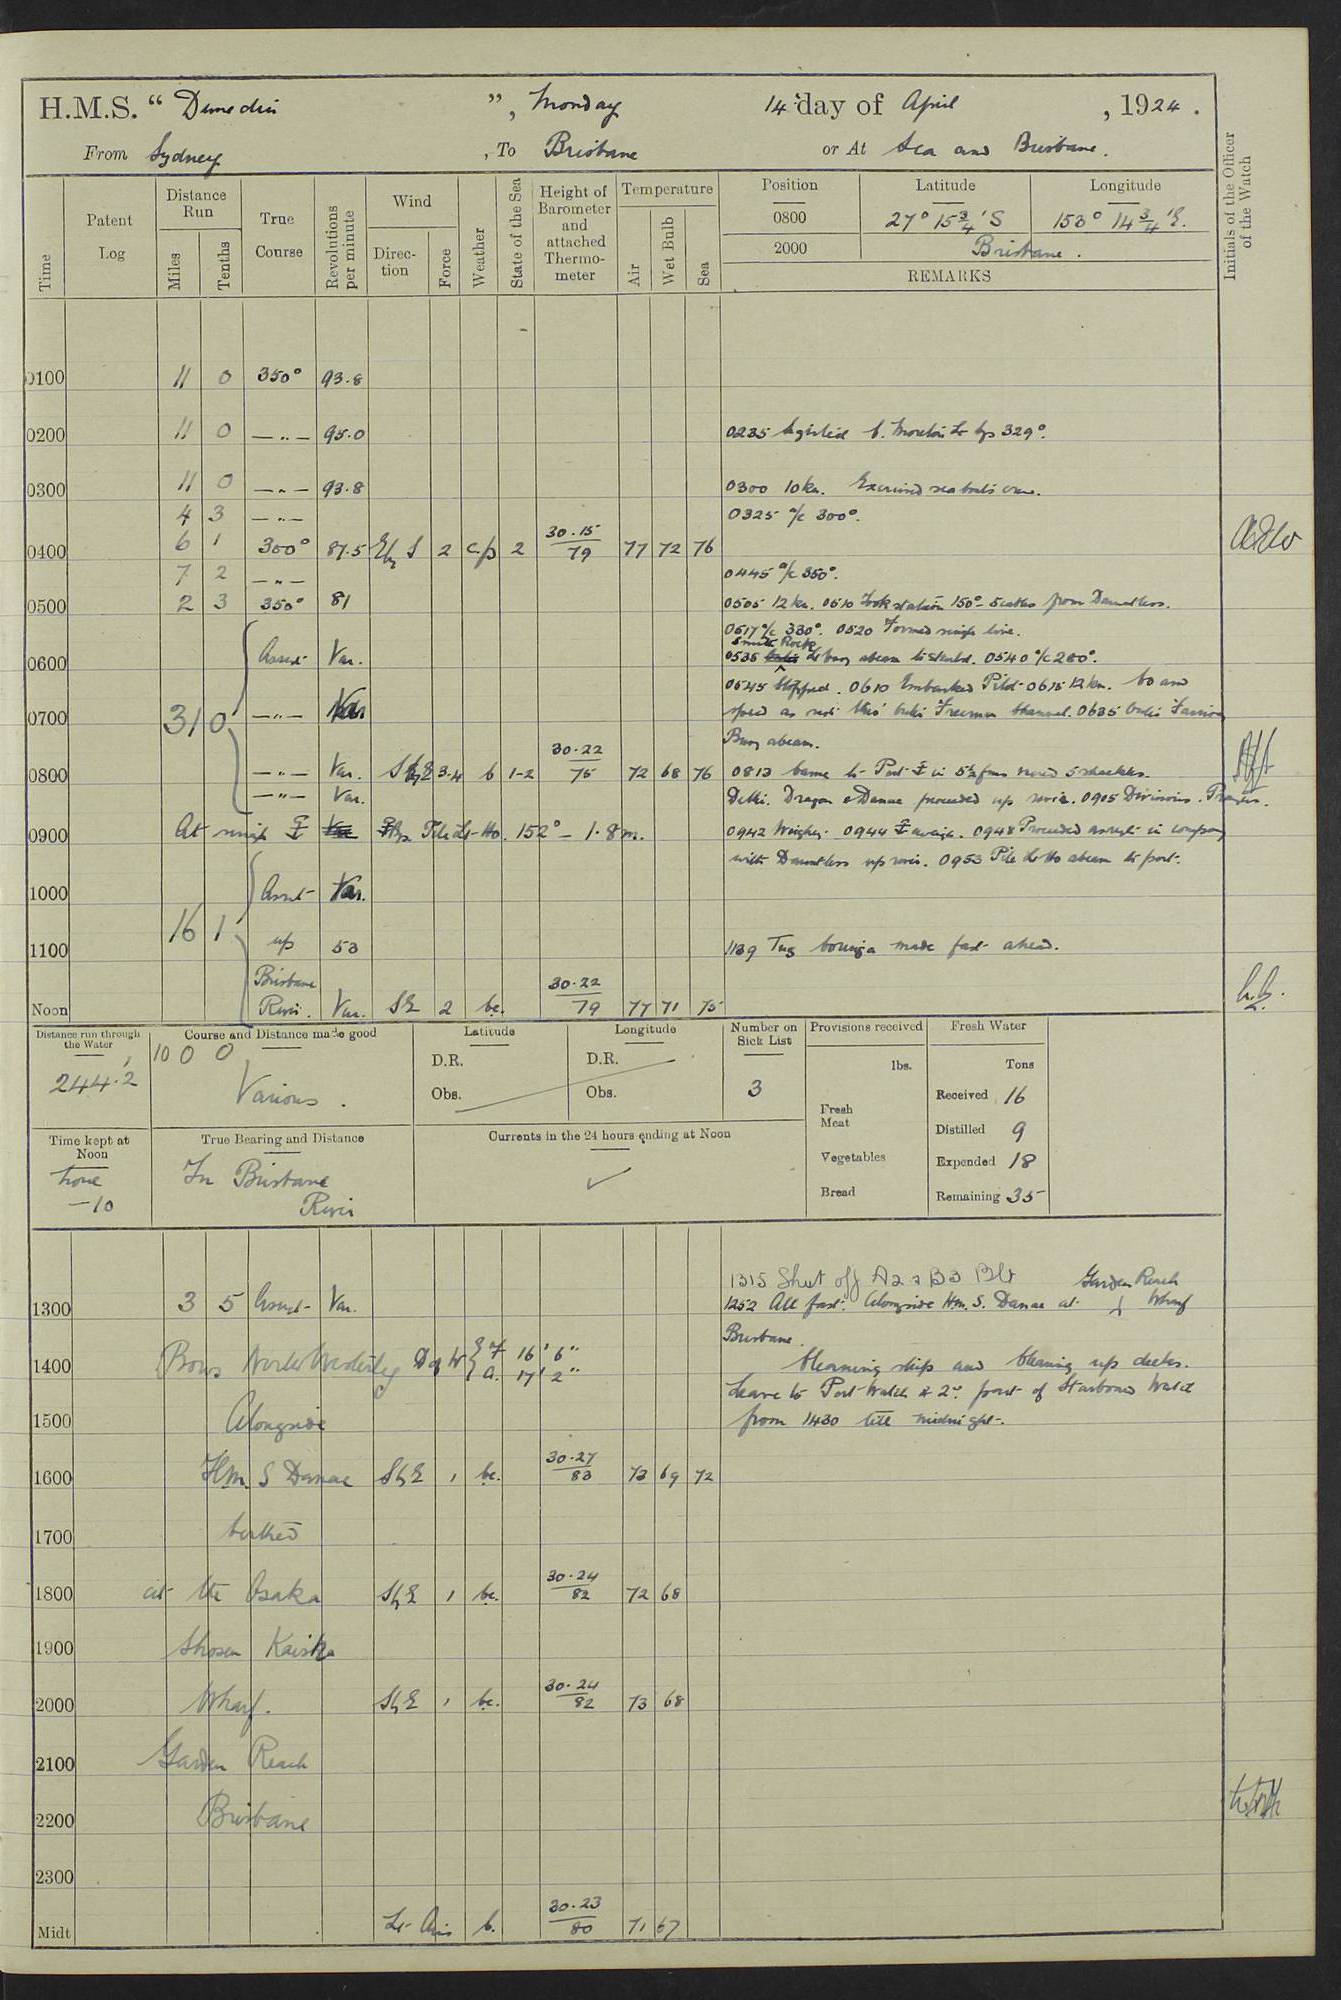 H.M.S. “ Dunedin ”, Monday 14 day of April , 1924 .
From Sydney , To Brisbane or At Sea and Brisbane.
Initials of the Officer of the Watch
Time Patent Log Distance Run Miles Tenths True Course Revolutions per minute Wind Direction Force Weather State of the Sea Height of Barometer and attached Thermometer Temperature Air Wet Bulb Sea
Position Latitude Longitude
0800 27° 15¾' S 153° 14¾' E.
2000 Brisbane.
REMARKS
0100 11 0 350° 93.8
0200 11 0 — „ — 95.0 0235 Sighted C. Moreton Lt brg 329°.
0300 11 0 — „ — 93.8 0300 10 kn. Exercised seaboat's crew.
4 3 — „ — 0325 a/c 300°.
0400 6 1 300° 87.5 E by S 2 c.p 2 30.15 79 77 72 76
7 2 — „ — 0445 a/c 350°.
0500 2 3 350° 81 0505 12 kn. 0510 Took station 150° 5 cables from Dauntless.
0517 a/c 330°. 0520 Formed single line.
Smith Rock
0600 Asreqt Var. 0535 Lt buoy abeam to Starbd. 0540 a/c 280°.
0545 Stopped. 0610 Embarked Pilot 0615 12 kn. Co and
0700 31 0 — „ — Var speed as reqt thro' outer Freeman Channel. 0635 outer Fairway
Buoy abeam.
0800 — „ — Var. S by E 3-4 b 1-2 30.22 75 72 68 76 0813 Came to Port ⚓ in 5½ fms veered 5 shackles.
— „ — Var. Delhi. Dragon & Danae proceeded up river. 0905 Divisions. Prayers.
0900 At single ⚓ Pile Lt-Ho. 152° – 1.8 m. 0942 Weighed. 0944 ⚓ aweigh. 0948 Proceeded asreqt in company
with Dauntless up river. 0953 Pile Lt Ho abeam to port.
1000 Asreqt Var.
16 1
1100 up 53 1139 Tug made fast ahead.
Brisbane
Noon River. Var. SE 2 bc. 30.22 79 77 71 75
Distance run through the Water Course and Distance made good Latitude Longitude Number on Sick List Provisions received Fresh Water
244.2 1000 Various. D.R. D.R. 3 lbs. Tons
Obs. Obs. Fresh Meat Received 16
Time kept at Noon True Bearing and Distance Currents in the 24 hours ending at Noon Distilled 9
Zone −10 In Brisbane River ✓ Vegetables Expended 18
Bread Remaining 35
1315 Shut off A2 & B3 Blr Garden Reach
1300 3 5 Asreqt Var. 1252 All fast. Alongside H.M.S. Danae at Wharf
Brisbane.
1400 Bows North Westerly D of W F 16' 6" A. 17' 2" Cleaning ship and Cleaning up decks.
Leave to Port Watch & 2nd part of Starboard Watch
1500 Alongside from 1430 till midnight.
1600 H.M.S Danae S by E 1 bc. 30.27 83 73 69 72
1700 berthed
1800 at the Osaka S by E 1 bc. 30.24 82 72 68
1900 Shosen Kaisha
2000 Wharf. S by E 1 bc. 30.24 82 73 68
2100 Garden Reach
2200 Brisbane
2300
Midt Lt Airs b. 30.23 80 71 67